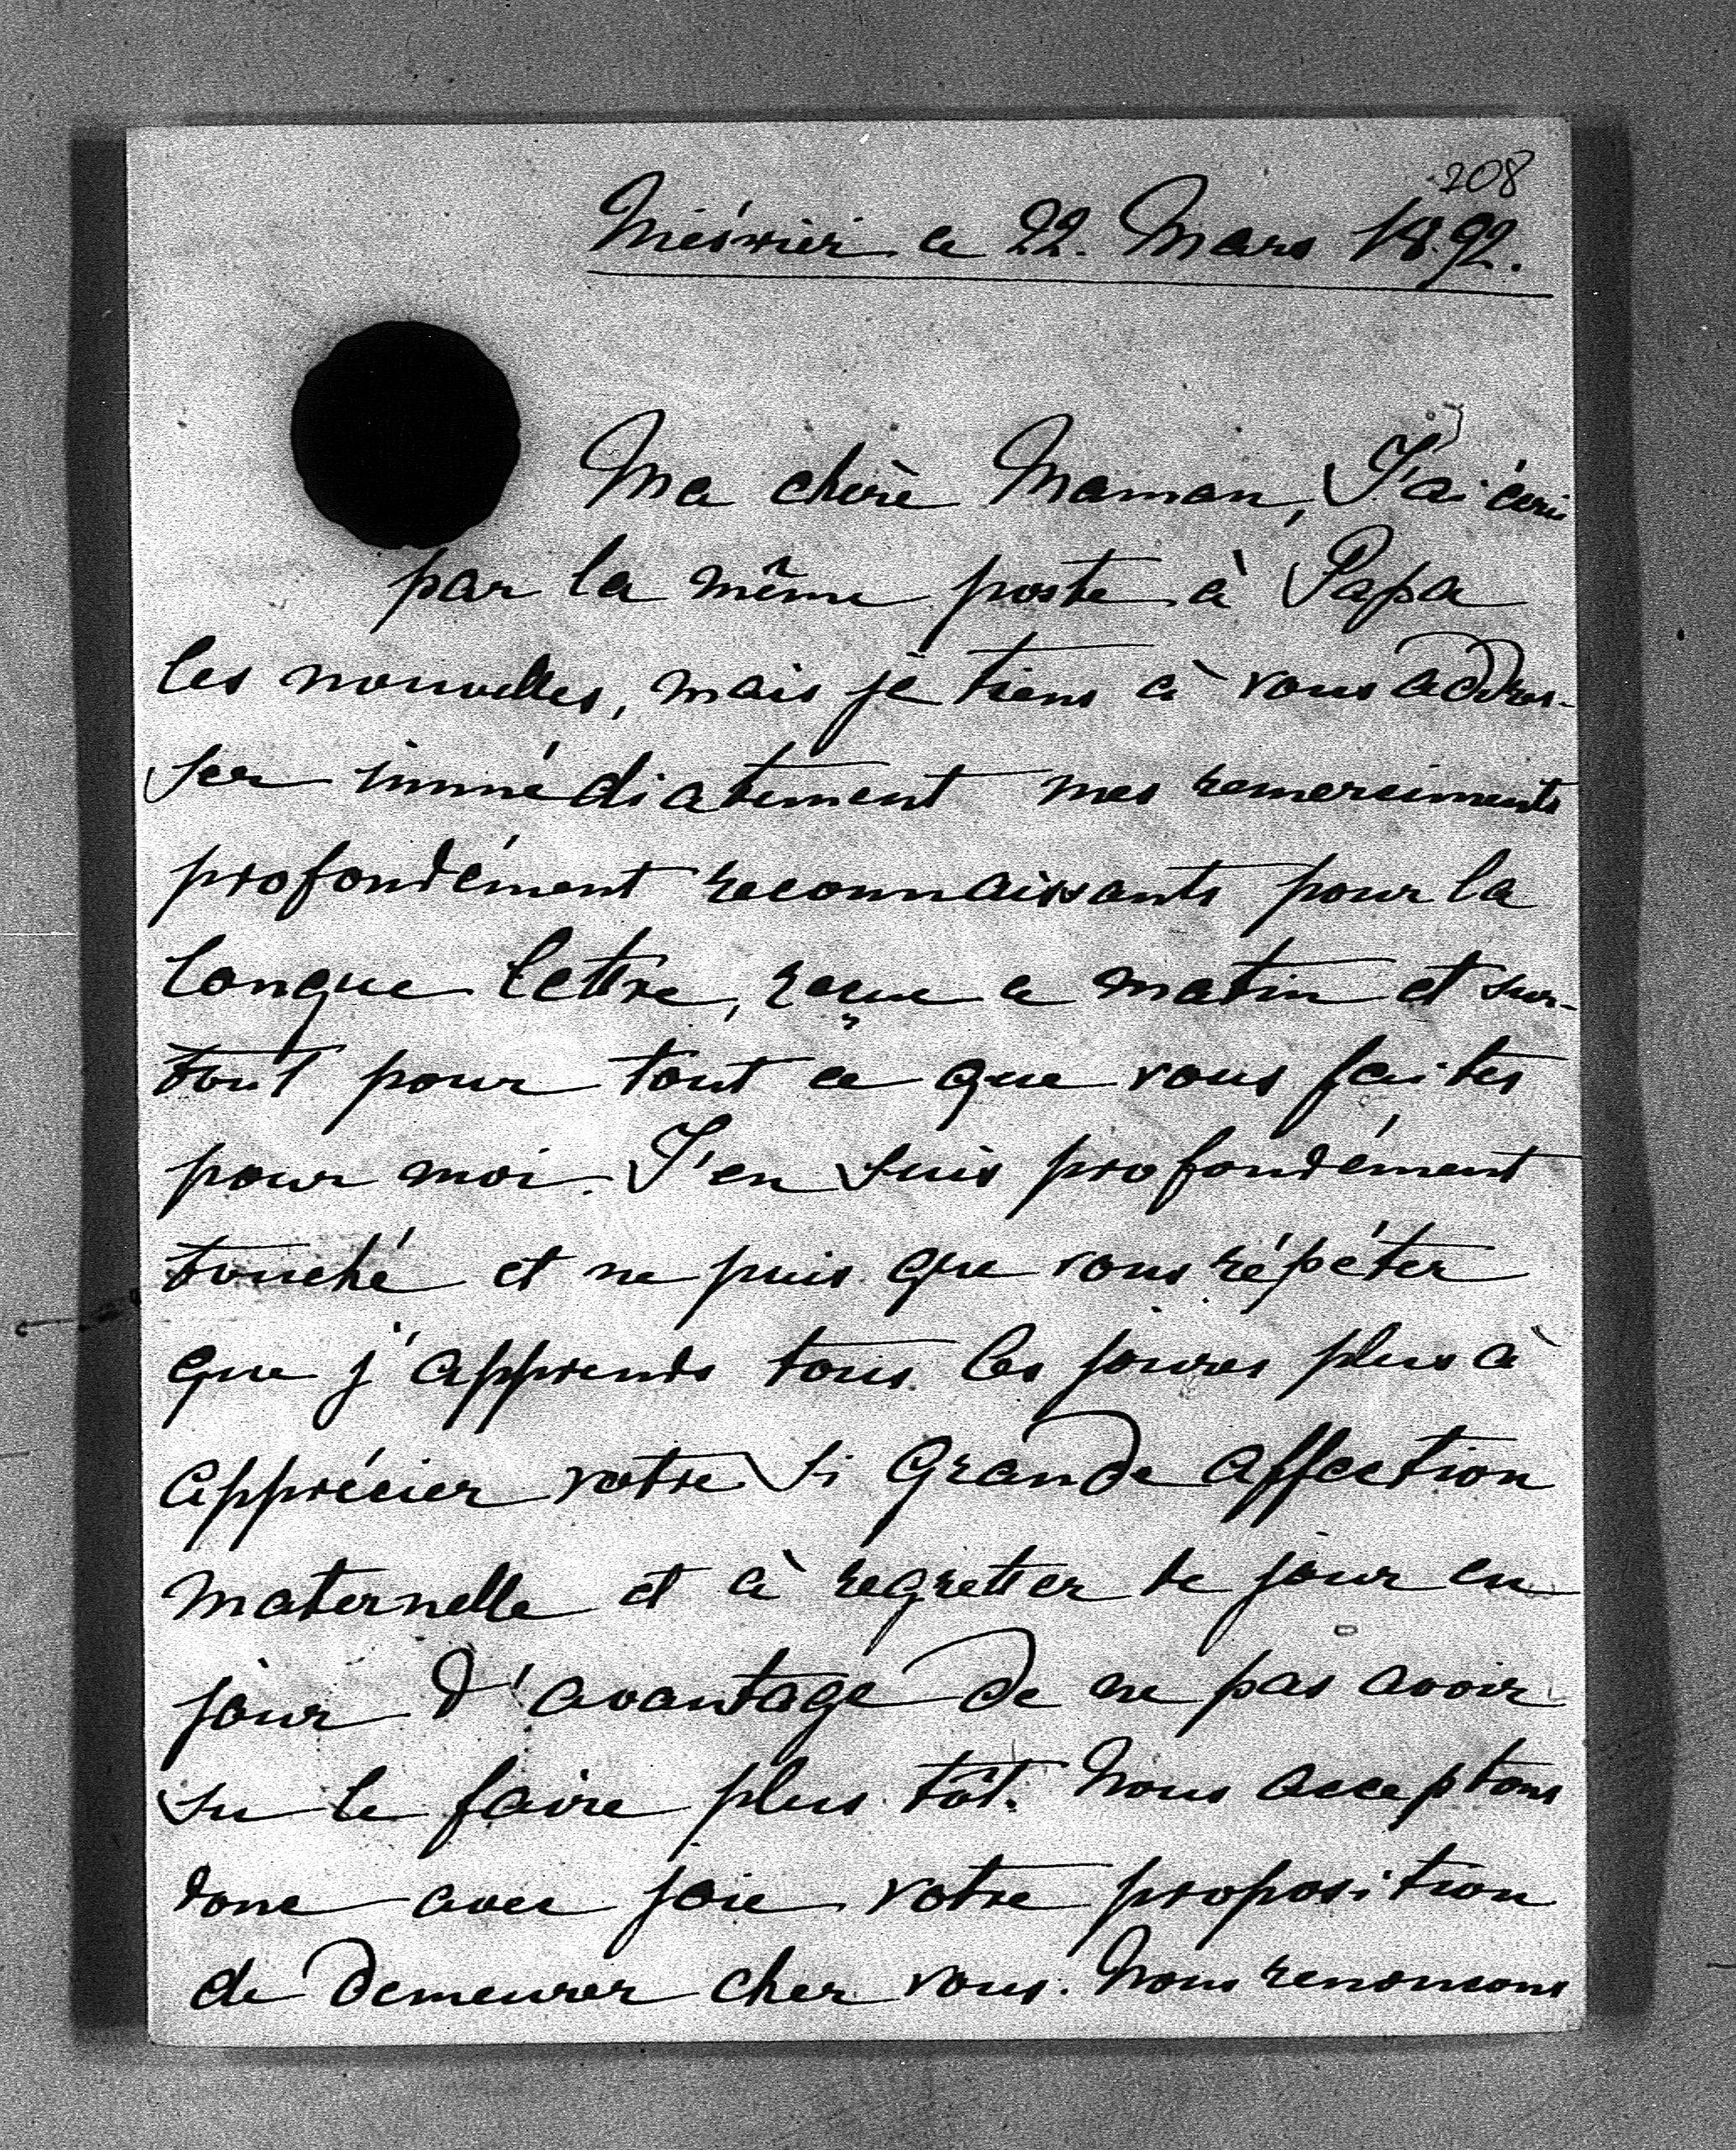 208
le 22. Mars 1892.
Ma chère Maman, J'ai écris
par la même poste à Papa
les nouvelles, mais je tiens à vous addres-
ser immédiatement mes remerciments
profondément reconnaissants pour la
longue lettre, reçue ce matin et sur-
tout pour tout ce que vous faites
pour moi. J'en suis profondément
touché et ne puis que vous répéter
que j'apprends tous les jours plus à
apprécier votre si grande affection
maternelle et à regretter de jour en
jour d'avantage de ne pas avoir
su le faire plus tôt. Nous acceptons
donc avec joie votre proposition
de demeurer chez vous. Nous renoncons